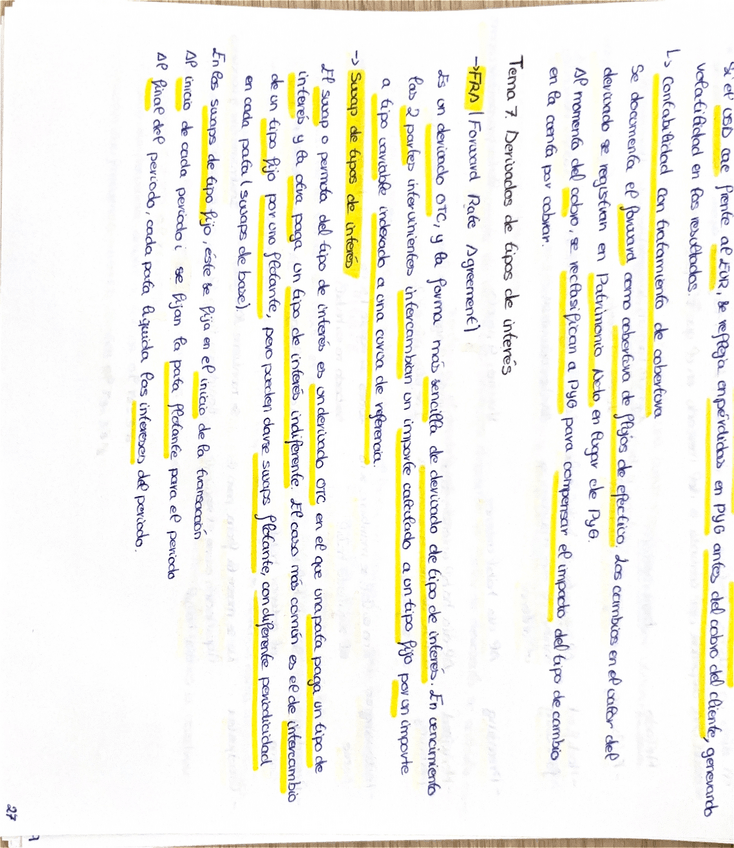 Si el USD cae frente al EUR, se refleja en pérdidas en PyG antes del cobro del cliente, generando
volatilidad en los resultados.
↳ Contabilidad con tratamiento de cobertura
Se documenta el forward como cobertura de flujos de efectivo. Los cambios en el valor del
derivado se registran en Patrimonio Neto en lugar de PyG.
Al momento del cobro, se reclasifican a PyG para compensar el impacto del tipo de cambio
en la cuenta por cobrar.
Tema 7. Derivados de tipos de interés
→ FRA (Forward Rate Agreement)
Es un derivado OTC, y la forma más sencilla de derivado de tipo de interés. En vencimiento
las 2 partes intervinientes intercambian un importe calculado a un tipo fijo por un importe
a tipo variable indexado a una curva de referencia.
→ Swap de tipos de interés
El swap o permuta del tipo de interés es un derivado OTC en el que una pata paga un tipo de
interés y la otra paga un tipo de interés indiferente. El caso más común es el de intercambio
de un tipo fijo por uno flotante, pero pueden darse swaps flotante, con diferente periodicidad
en cada pata (swaps de base).
En los swaps de tipo fijo, éste se fija en el inicio de la transacción
Al inicio de cada periodo: se fijan la pata flotante para el periodo
Al final del periodo, cada pata liquida los intereses del periodo.
27